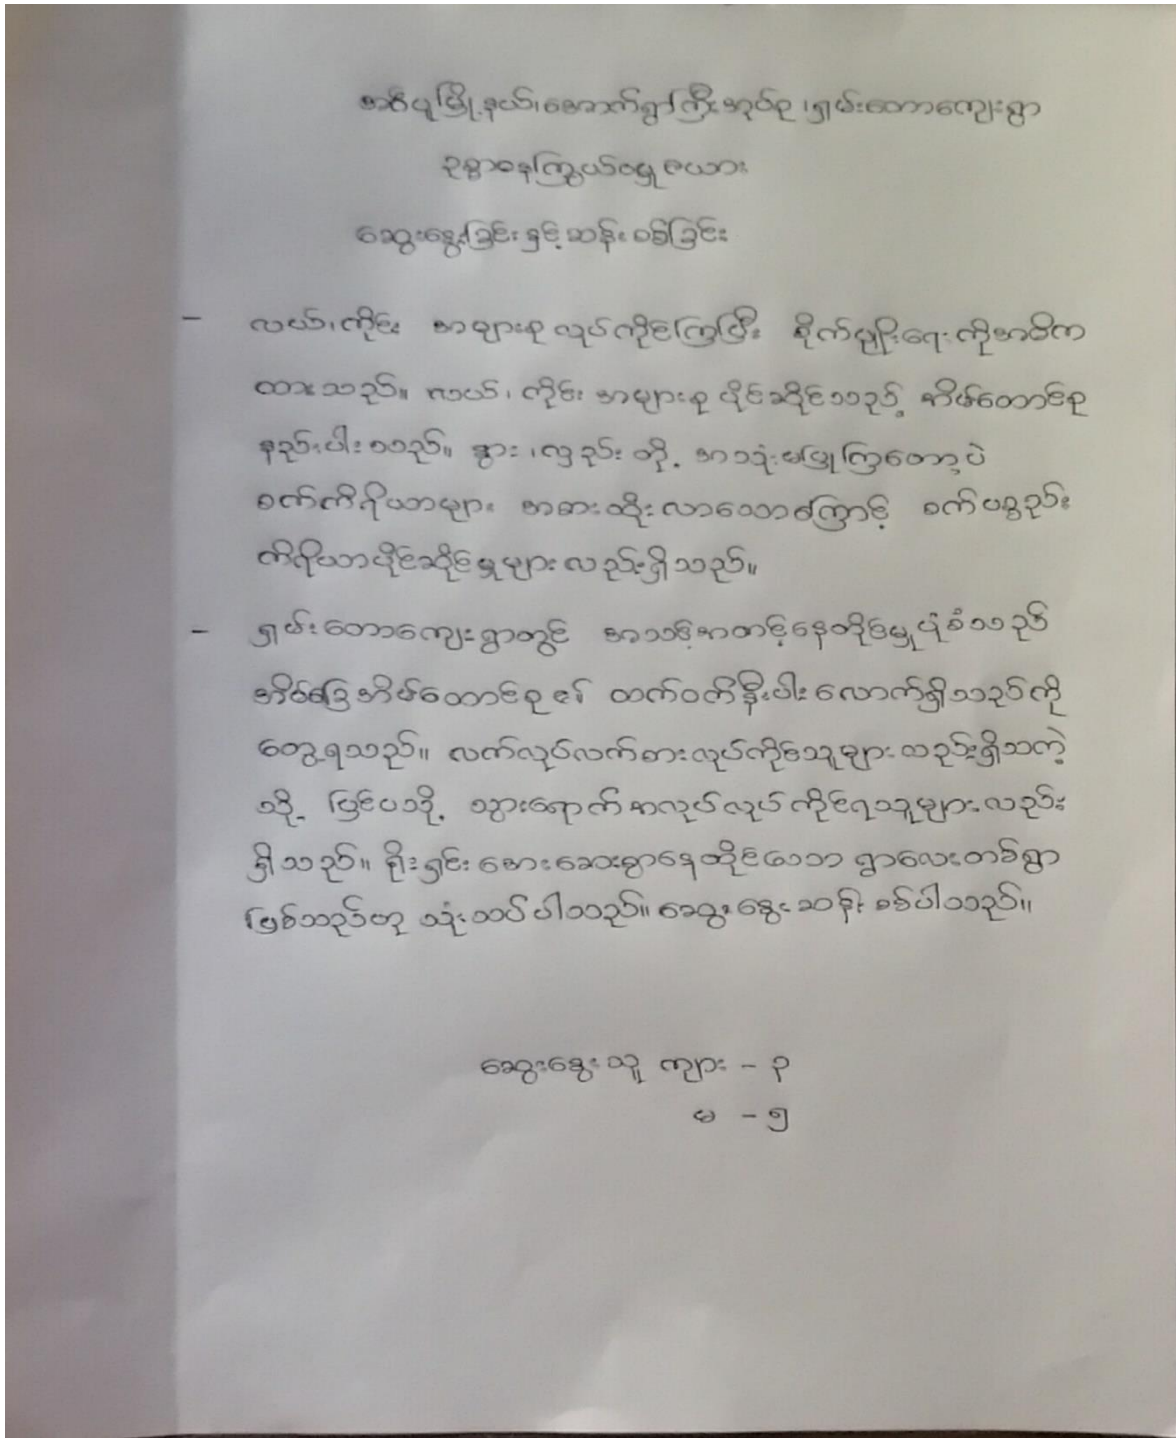 အင်္ဂပူမြို့နယ်၊အောက်ရွာကြီးအုပ်စု၊ရှမ်းတောကျေးရွာ
ဥစ္စာဓနကြွယ်ဝမှုဇယား
ဆွေးနွေးခြင်းနှင့်ဆန်းစစ်ခြင်း
- လယ်၊ကိုင်း အများစုလုပ်ကိုင်ကြပြီး စိုက်ပျိုးရေးကိုအဓိက
ထားသည်။ လယ်၊ကိုင်း အများစုပိုင်ဆိုင်သည့် အိမ်ထောင်စု
နည်းပါးသည်။ နွား၊လှည်းတို့ အသုံးမပြုကြတော့ပဲ
စက်ကိရိယာများ အစားထိုးလာသောကြောင့် စက်ပစ္စည်း
ကိရိယာပိုင်ဆိုင်မှုများလည်းရှိသည်။
- ရှမ်းတောကျေးရွာတွင် အသင့်အတင့်နေထိုင်မှုပုံစံသည်
အိမ်ခြေအိမ်ထောင်စု၏ ထက်ဝက်နီးပါးလောက်ရှိသည်ကို
တွေ့ရသည်။ လက်လုပ်လက်စားလုပ်ကိုင်သူများလည်းရှိသကဲ့
သို့ ပြင်ပသို့ သွားရောက်အလုပ်လုပ်ကိုင်ရသူများလည်း
ရှိသည်။ ရိုးရှင်းအေးဆေးစွာနေထိုင်သော ရွာလေးတစ်ရွာ
ဖြစ်သည်ဟု သုံးသပ်ပါသည်။ ဆွေးနွေးဆန်းစစ်ပါသည်။
ဆွေးနွေးသူ ကျား - ၃
မ - ၅